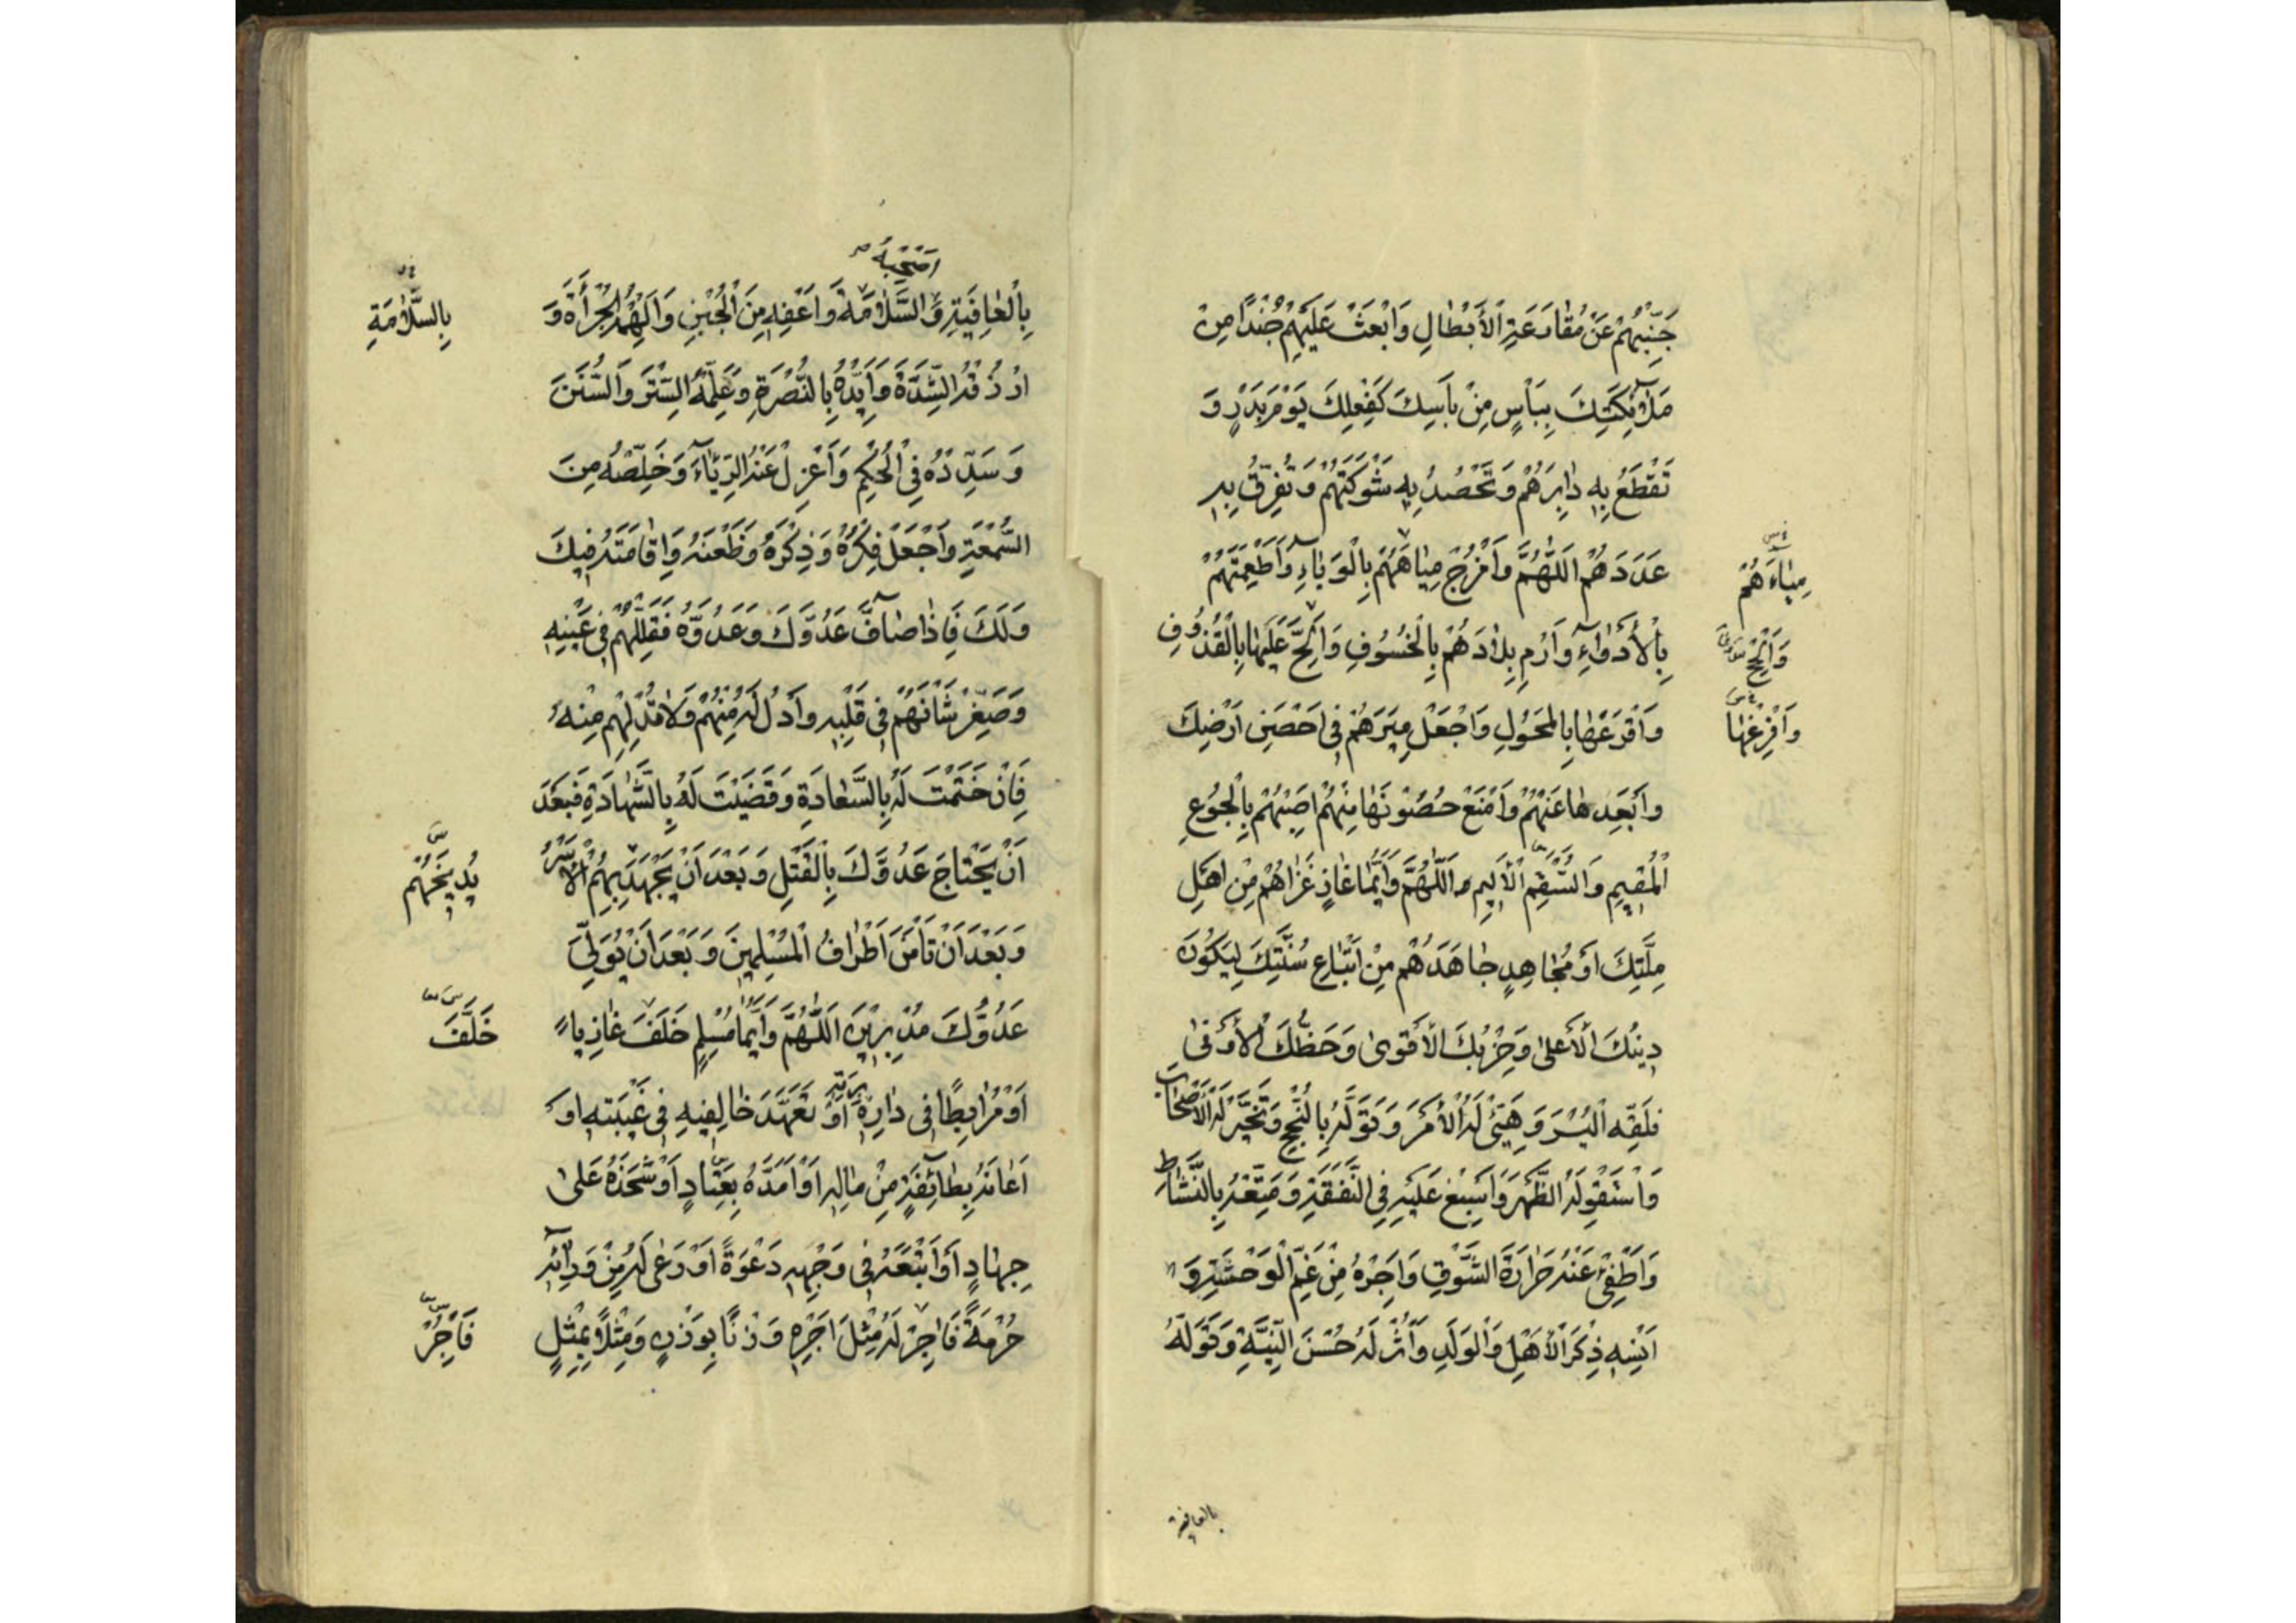 جَنِّبْهُمْ عَنْ مُقَارَعَةِ الْأَبْطَالِ وَابْعَثْ عَلَيْهِمْ جُنْدًا مِنْ
مَلٰٓائِكَتِكَ بِبَأْسٍ مِنْ بَأْسِكَ كَفِعْلِكَ يَوْمَ بَدْرٍ وَ
تَقْطَعُ بِهِ دَابِرَهُمْ وَتَحْصُدُ بِهِ شَوْكَتَهُمْ وَتُفَرِّقُ بِهِ
عَدَدَهُمْ اَللّٰهُمَّ وَامْزُجْ مِيَاهَهُمْ بِالْوَبَاءِ وَأَطْعِمَتَهُمْ
مِيَاءَهُمْ
بِالْأَدْوَاءِ وَارْمِ بِلَادَهُمْ بِالْخُسُوفِ وَأَلِحَّ عَلَيْهَا بِالْقُذُوفِ
وَأَلْحِحْ
وَافْرَعْهَا بِالْمُحُولِ وَاجْعَلْ مِيَرَهُمْ فِي أَحَصِّ أَرْضِكَ
وَأَفْرِغْهَا
وَأَبْعَدِهَا عَنْهُمْ وَامْنَعْ حُصُونَهَا مِنْهُمْ أَصِبْهُمْ بِالْجُوعِ
الْمُقِيمِ وَالسُّقْمِ الْأَلِيمِ اَللّٰهُمَّ وَأَيُّمَا غَازٍ غَزَاهُمْ مِنْ أَهْلِ
مِلَّتِكَ أَوْ مُجَاهِدٍ جَاهَدَهُمْ مِنْ أَتْبَاعِ سُنَّتِكَ لِيَكُونَ
دِينُكَ الْأَعْلٰى وَحِزْبُكَ الْأَقْوٰى وَحَظُّكَ الْأَوْفٰى
فَلَقِّهِ الْيُسْرَ وَهَيِّئْ لَهُ الْأَمْرَ وَتَوَلَّهُ بِالنُّجْحِ وَتَخَيَّرْ لَهُ الْأَصْحَابَ
وَاسْتَقْوِ لَهُ الظَّهْرَ وَأَسْبِغْ عَلَيْهِ فِي النَّفَقَةِ وَمَتِّعْهُ بِالنَّشَاطِ
وَأَطْفِئْ عَنْهُ حَرَارَةَ الشَّوْقِ وَأَجِرْهُ مِنْ غَمِّ الْوَحْشَةِ وَ
أَنْسِهِ ذِكْرَ الْأَهْلِ وَالْوَلَدِ وَأْثُرْ لَهُ حُسْنَ النِّيَّةِ وَتَوَلَّهُ
بالعافية
بِالْعَافِيَةِ وَالسَّلَامَةَ وَأَعْفِهِ مِنَ الْجُبْنِ وَأَلْهِمْهُ الْجُرْأَةَ وَ
بِالسَّلَامَةِ
ارْزُقْهُ الشِّدَّةَ وَأَيِّدْهُ بِالنُّصْرَةِ وَعَلِّمْهُ السِّيَرَ وَالسُّنَنَ
وَسَدِّدْهُ فِي الْحُكْمِ وَاعْزِلْ عَنْهُ الرِّيَاءَ وَخَلِّصْهُ مِنَ
السُّمْعَةِ وَاجْعَلْ فِكْرَهُ وَذِكْرَهُ وَظَعْنَهُ وَإِقَامَتَهُ فِيكَ
وَلَكَ فَإِذَا صَافَّ عَدُوَّكَ وَعَدُوَّهُ فَقَلِّلْهُمْ فِي عَيْنِهِ
وَصَغِّرْ شَأْنَهُمْ فِي قَلْبِهِ وَأَدِلْ لَهُ مِنْهُمْ وَلَا تُدِلْهُمْ مِنْهُ
فَإِنْ خَتَمْتَ لَهُ بِالسَّعَادَةِ وَقَضَيْتَ لَهُ بِالشَّهَادَةِ فَبَعْدَ
أَنْ يَجْتَاحَ عَدُوَّكَ بِالْقَتْلِ وَبَعْدَ أَنْ يَجْهَدَ بِهِمُ الْأَسْرُ
وَبَعْدَ أَنْ تَأْمَنَ أَطْرَافُ الْمُسْلِمِينَ وَبَعْدَ أَنْ يُوَلِّيَ
عَدُوُّكَ مُدْبِرِينَ اَللّٰهُمَّ وَأَيُّمَا مُسْلِمٍ خَلَفَ غَازِيًا
خَلَّفَ
أَوْ مُرَابِطًا فِي دَارِهِ أَوْ تَعَهَّدَ خَالِفِيهِ فِي غَيْبَتِهِ أَوْ
أَعَانَهُ بِطَائِفَةٍ مِنْ مَالِهِ أَوْ أَمَدَّهُ بِعَتَادٍ أَوْ شَحَذَهُ عَلٰى
جِهَادٍ أَوْ أَتْبَعَهُ فِي وَجْهِهِ دَعْوَةً أَوْ رَعٰى لَهُ مِنْ وَرَائِهِ
حُرْمَةً فَآجِرْ لَهُ مِثْلَ أَجْرِهِ وَزْنًا بِوَزْنٍ وَمِثْلًا بِمِثْلٍ
فَأْجُرْ